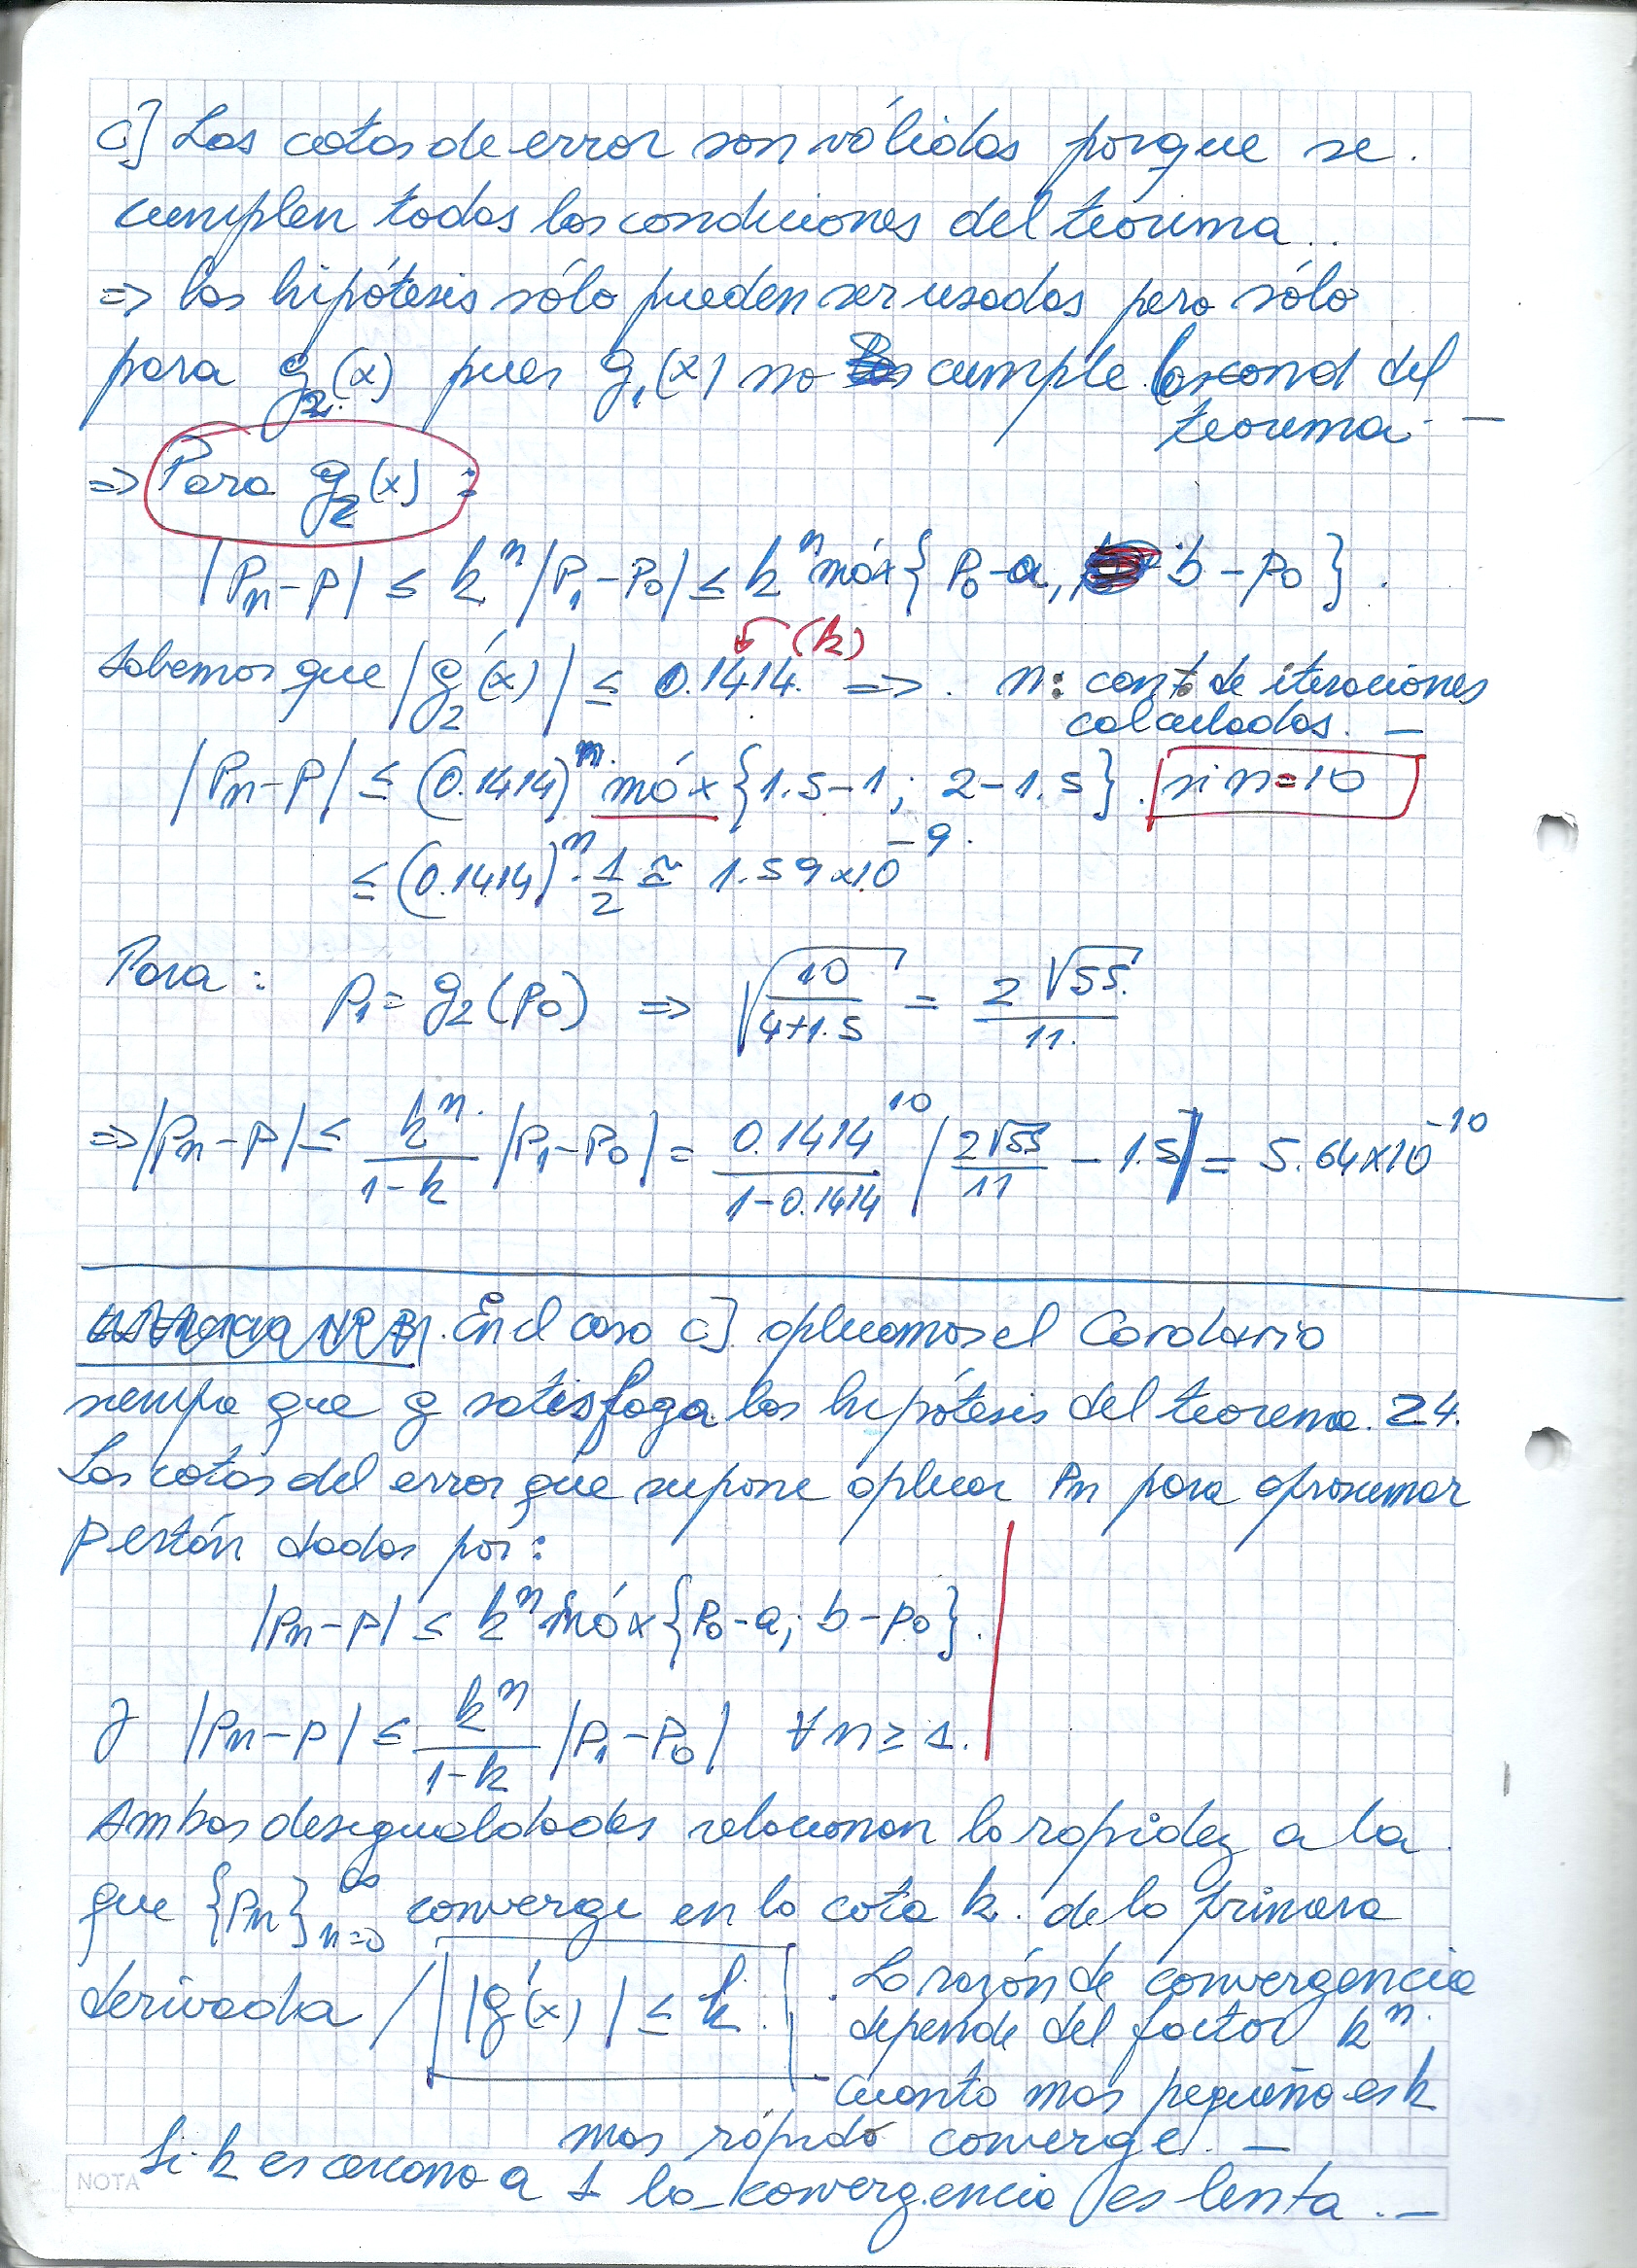 c] Las cotas de error son válidas porque se
cumplen todas las condiciones del teorema..
=> las hipótesis sólo pueden ser usadas pero sólo
para g₂(x) pues g₁(x) no cumple las cond del
teorema.—
=> Para g₂(x):
|Pn-P| ≤ kⁿ|P₁-P₀| ≤ kⁿ máx{P₀-a, b-p₀}.
(k)
Sabemos que |g₂'(x)| ≤ 0.1414 => . n: cant. de iteraciones
calculadas. —
|Pn-P| ≤ (0.1414)ⁿ máx{1.5-1; 2-1.5}. si n=10
≤ (0.1414)ⁿ · 1/2 ≅ 1.59x10⁻⁹.
Para: p₁= g₂(p₀) => √(10/(4+1.5)) = 2√55/11.
=> |Pn-P| ≤ kⁿ/(1-k) |P₁-P₀| = 0.1414¹⁰/(1-0.1414) |2√55/11 - 1.5| = 5.64x10⁻¹⁰
En el caso c] aplicamos el Corolario
siempre que g satisfaga las hipótesis del teorema. 2.4.
Las cotas del error que supone aplicar Pn para aproximar
P están dadas por:
|Pn-P| ≤ kⁿ máx{P₀-a; b-p₀}.
y |Pn-P| ≤ kⁿ/(1-k) |P₁-P₀| ∀n≥1.
Ambas desigualdades relacionan la rapidez a la
que {Pn}∞n=0 converge en la cota k. de la primera
derivada / |g'(x)| ≤ k. La razón de convergencia
depende del factor kⁿ.
cuanto mas pequeño es k
mas rápido converge. —
Si k es cercano a 1 la convergencia es lenta.—
NOTA